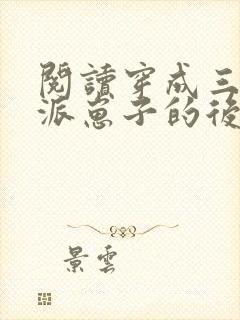 閱讀穿成三
派崽子的後
景雲